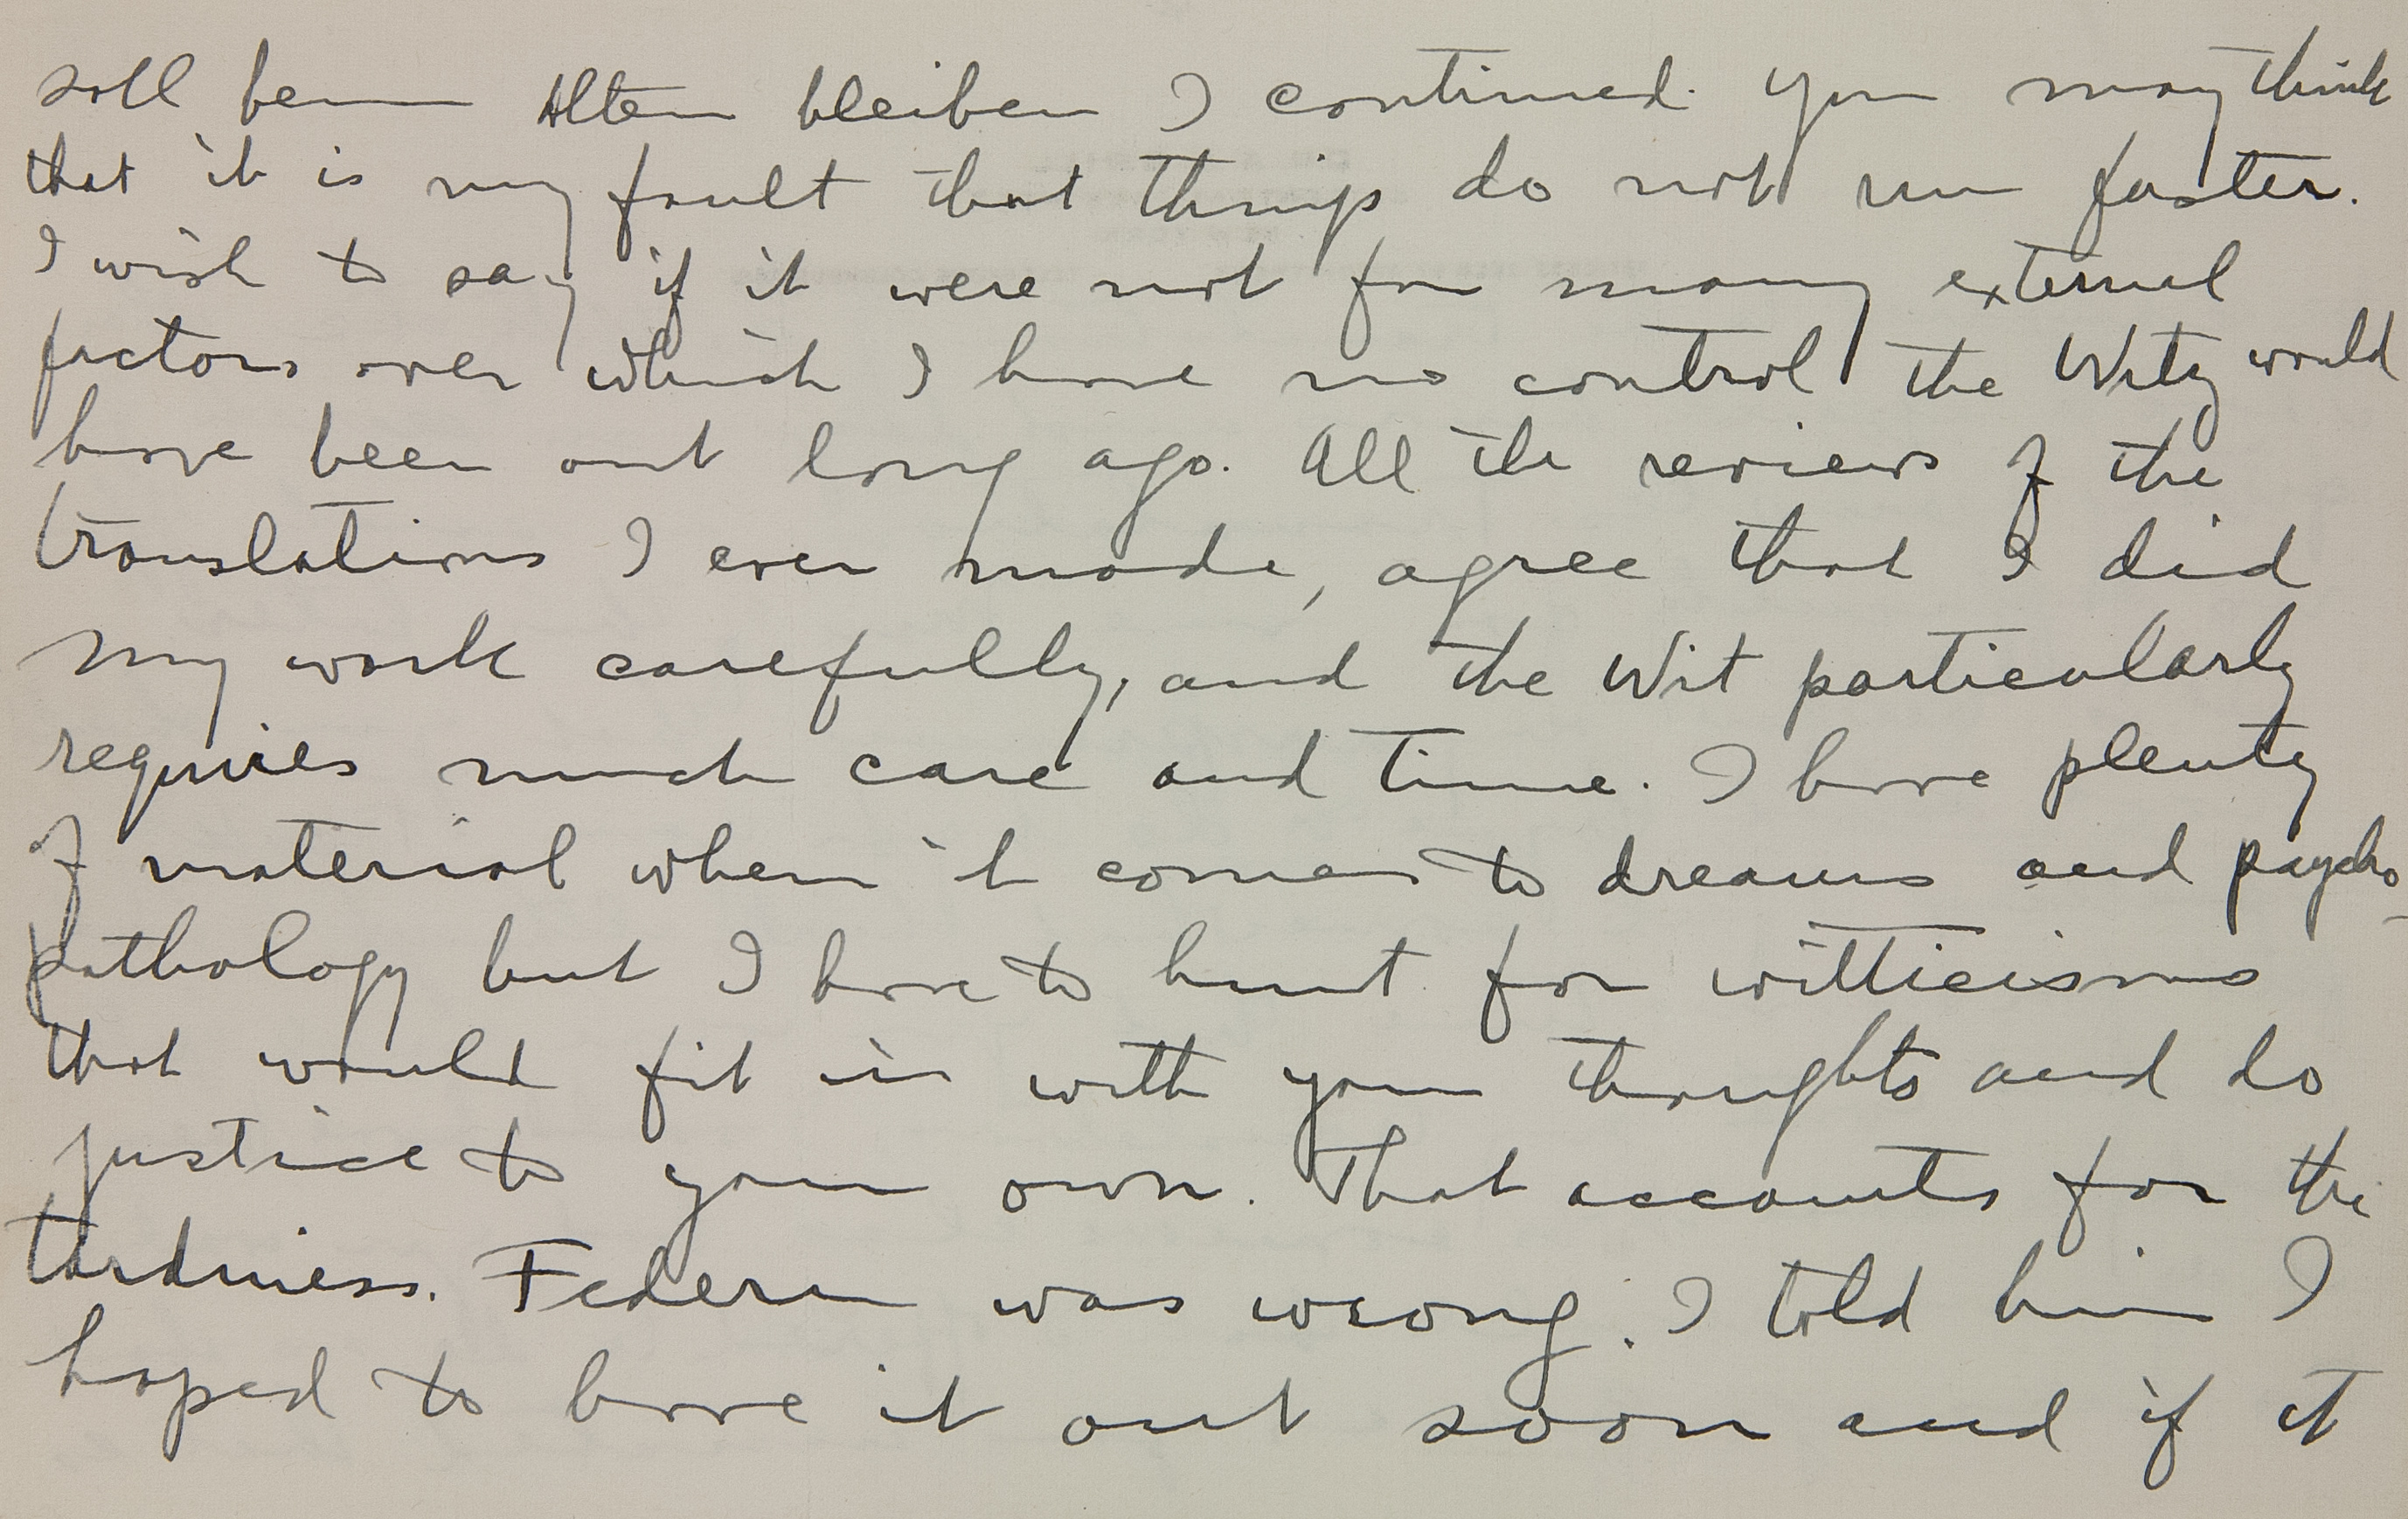 soll beim Alten bleiben I continued. You may think
that it is my fault that things do not run faster.
I wish to say if it were not for many external
factors over which I have no control the Witz would
have been out long ago. All the reviews of the
translations I ever made, agree that I did
my work carefully, and the Wit particularly
requires much care and time. I have plenty
of material when it comes to dreams and psycho-
pathology but I have to hunt for witticisms
that would fit in with your thoughts and do
justice to your own. That accounts for the
tardiness. Federn was wrong. I told him I
hoped to have it out soon and if it